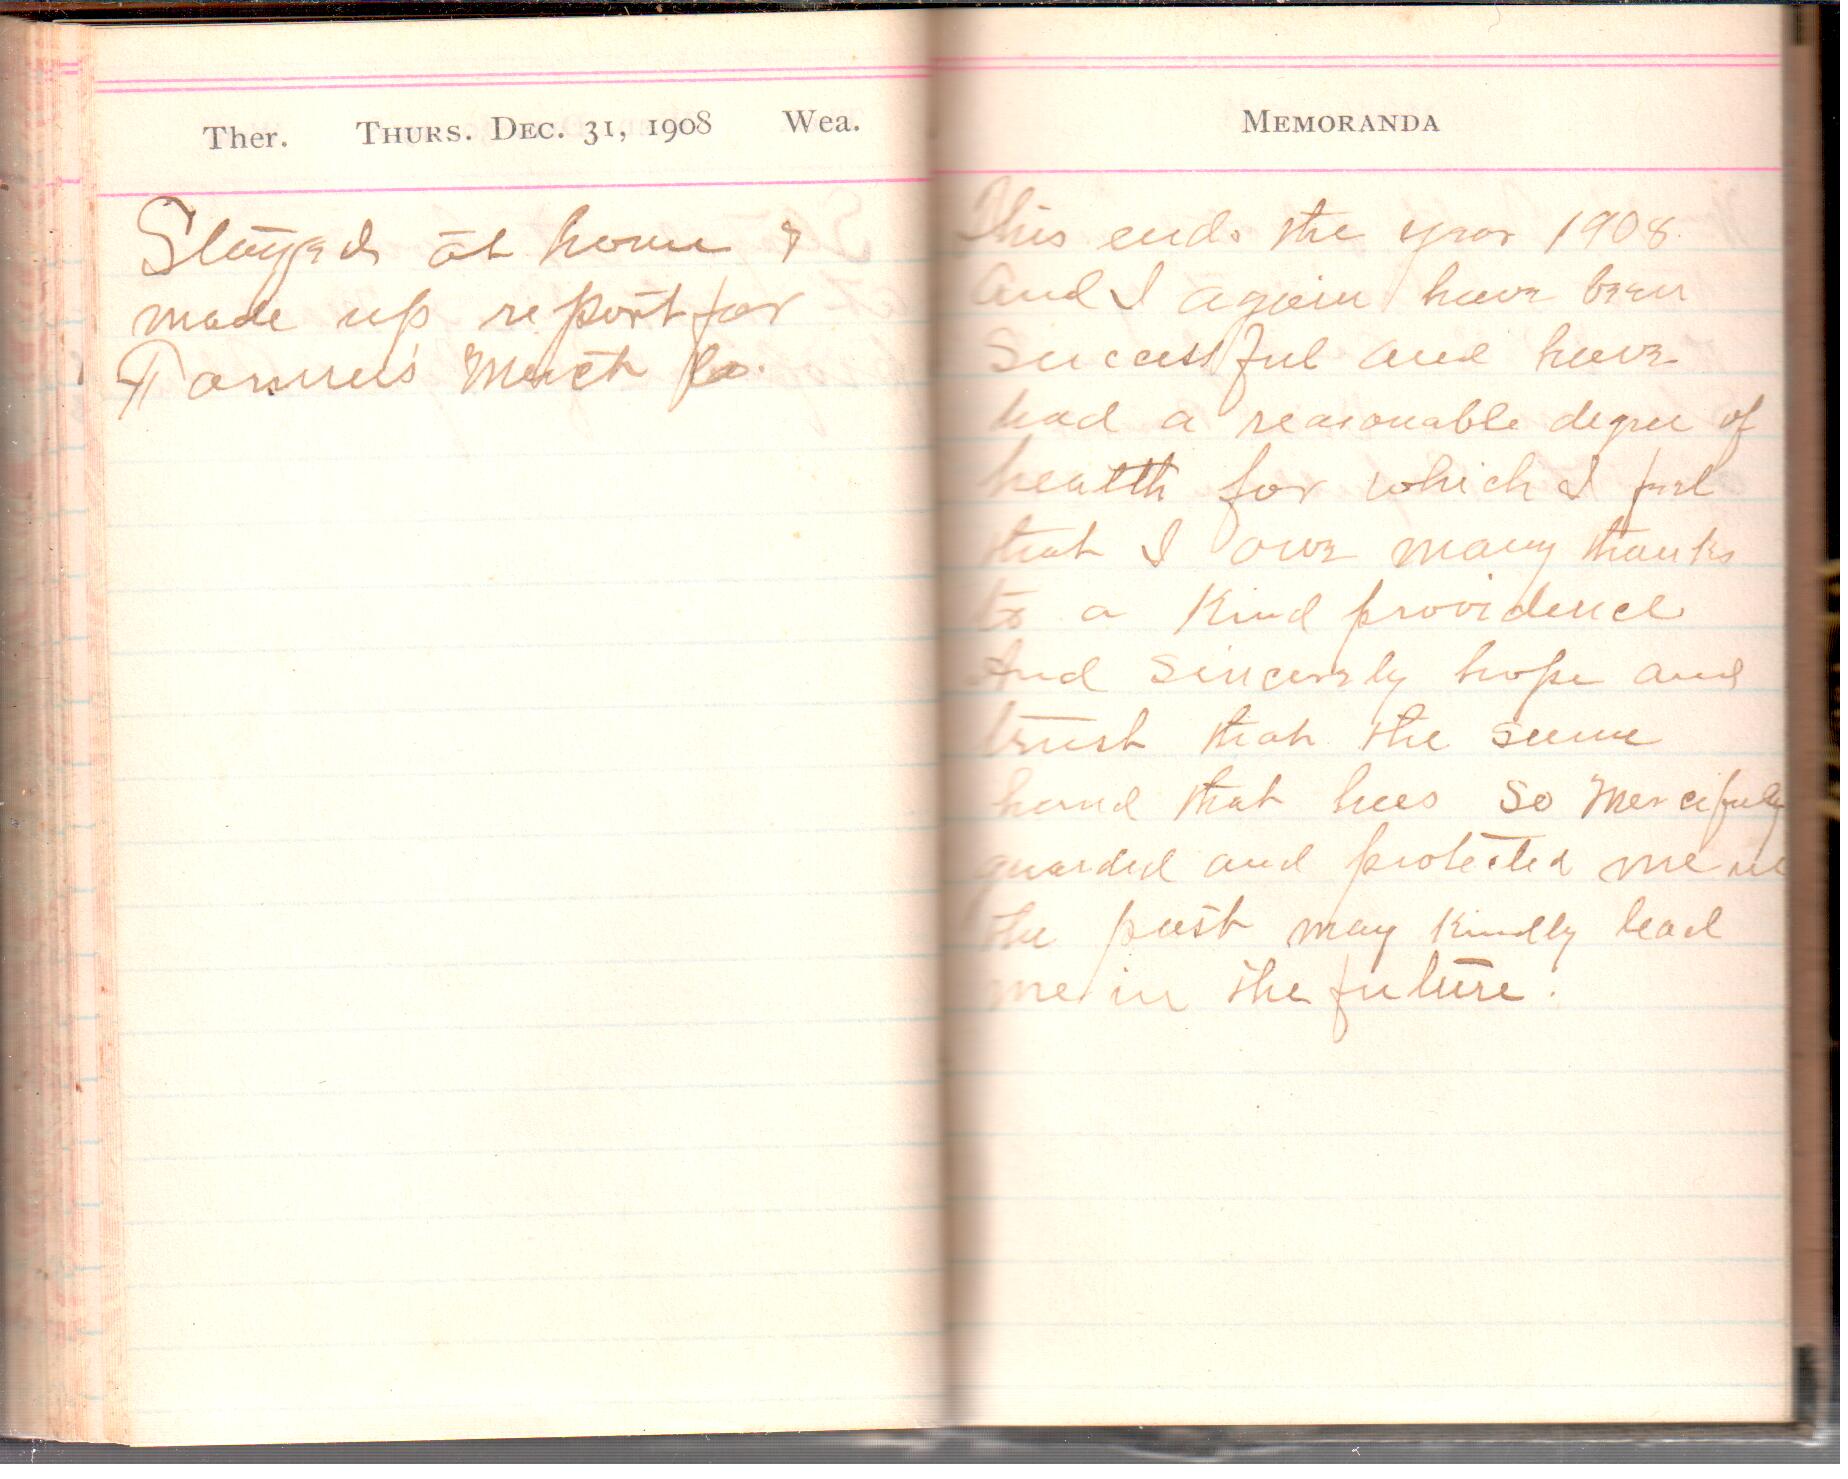 Ther. THURS. DEC. 31, 1908 Wea.
Stayed at home &
made up report for
Farmers Merch Co.
MEMORANDA
This ends the year 1908.
And I again have been
Successful and have
had a reasonable degree of
health for which I feel
that I owe many thanks
to a Kind providence
And Sincerely hope and
trust that the same
hand that has So Mercifuly
guarded and protected me in
the past may Kindly lead
me in the future.